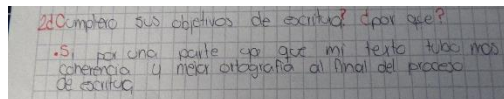 2d Cumplero sus objetivos de escritua? ¿por que?
• Si por una parte ya que mi texto tubo mas
coherencia y mejor ortografia al final del proceso
de escritua